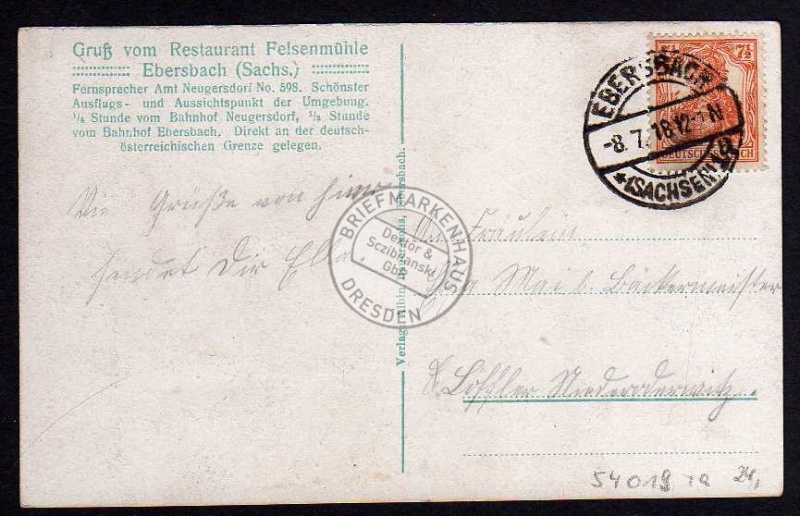 Gruß vom Restaurant Felsenmühle
Ebersbach (Sachs.)
Fernsprecher Amt Neugersdorf No. 598. Schönster
Ausflugs- und Aussichtspunkt der Umgebung.
¼ Stunde vom Bahnhof Neugersdorf, ½ Stunde
vom Bahnhof Ebersbach. Direkt an der deutsch-
österreichischen Grenze gelegen.
7½ 7½
DEUTSCHES REICH
EBERSBACH
-8.7.18.12-1N
*(SACHSEN)
Die Grüße von hier
sendet Dir Ella.
Verlag: Albin Ebersbach.
BRIEFMARKENHAUS
Dektör &
Sczibilanski
GbR
DRESDEN
Fräulein
Mai b. Bäckermeister
Löffler Niederoderwitz.
54019